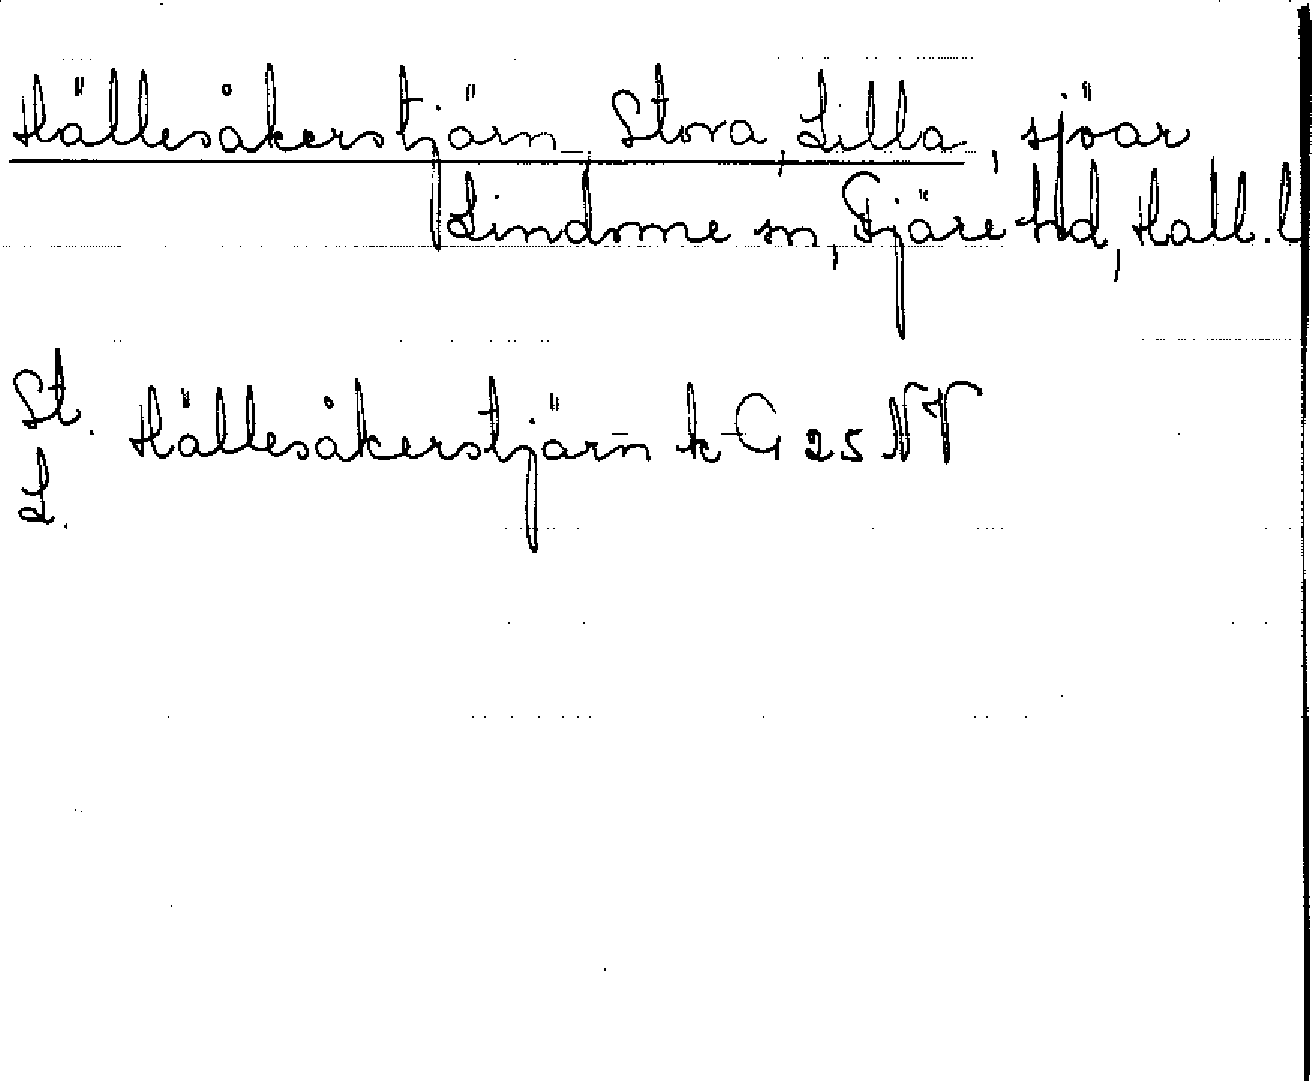 Hällesåkerstjärn, Stora, Lilla, sjöar
Lindome sn, Fjäre hd, Hall. l
St. Hällesåkerstjärn k G 25 NV
L.